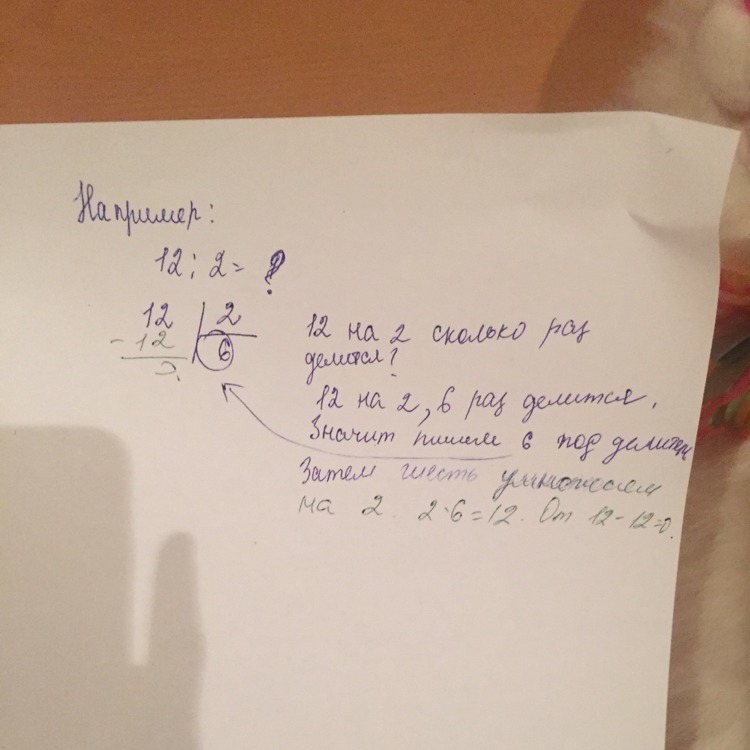 Например:
12 : 2 = ?
12 2
- 12 6
0.
12 на 2 сколько раз
делится?
12 на 2, 6 раз делится.
Значит пишем 6 под делителем
Затем шесть умножаем
на 2. 2·6=12. От 12-12=0.